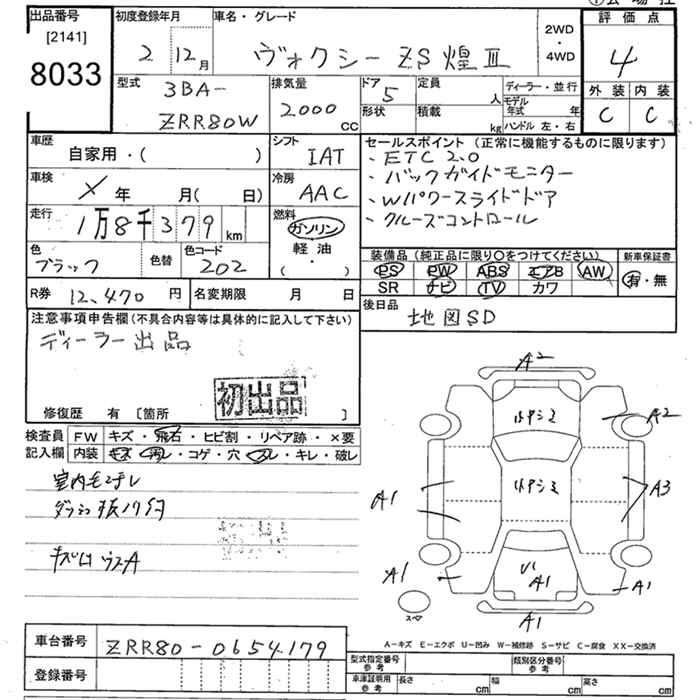 出品番号
[2141]
8033
初度登録年月
2 12月
車名・グレード
ヴォクシー ZS 煌Ⅲ
2WD
・
4WD
評価点
4
外装 内装
C C
型式
3BA-
ZRR80W
排気量
2000
CC
ドア
5
形状
定員
人
積載
kg
ディーラー・並行
モデル年式 年
ハンドル 左・右
車歴
自家用・( )
シフト
IAT
車検
X 年 月( 日)
冷房
AAC
走行
1万8千379
km
燃料
ガソリン
軽油
( ・ )
色
ブラック
色替
色コード
202
セールスポイント (正常に機能するものに限ります)
・ETC 2.0
・バックガイドモニター
・Wパワースライドドア
・クルーズコントロール
装備品(純正品に限り○をつけてください)
PS PW ABS エアB AW
SR ナビ TV カワ
新車保証書
有・無
R券 12,470 円
名変期限 月 日
後日品
地図SD
注意事項申告欄(不具合内容等は具体的に記入して下さい)
ディーラー出品
初出品
修復歴 有 [箇所 ]
検査員
記入欄
FW キズ・飛石・ヒビ割・リペア跡・×要
内装 キズ・汚レ・コゲ・穴・スレ・キレ・破レ
室内
キズ
A2
A2
A1
A3
A1
A1
A1
A1
スペア
A-キズ E-エクボ U-凹み W-補修跡 S-サビ C-腐食 XX-交換済
車台番号
ZRR80-0654179
登録番号
型式指定番号
参考
類別区分番号
参考
車庫証明用
参考
長さ cm
幅 cm
高さ cm